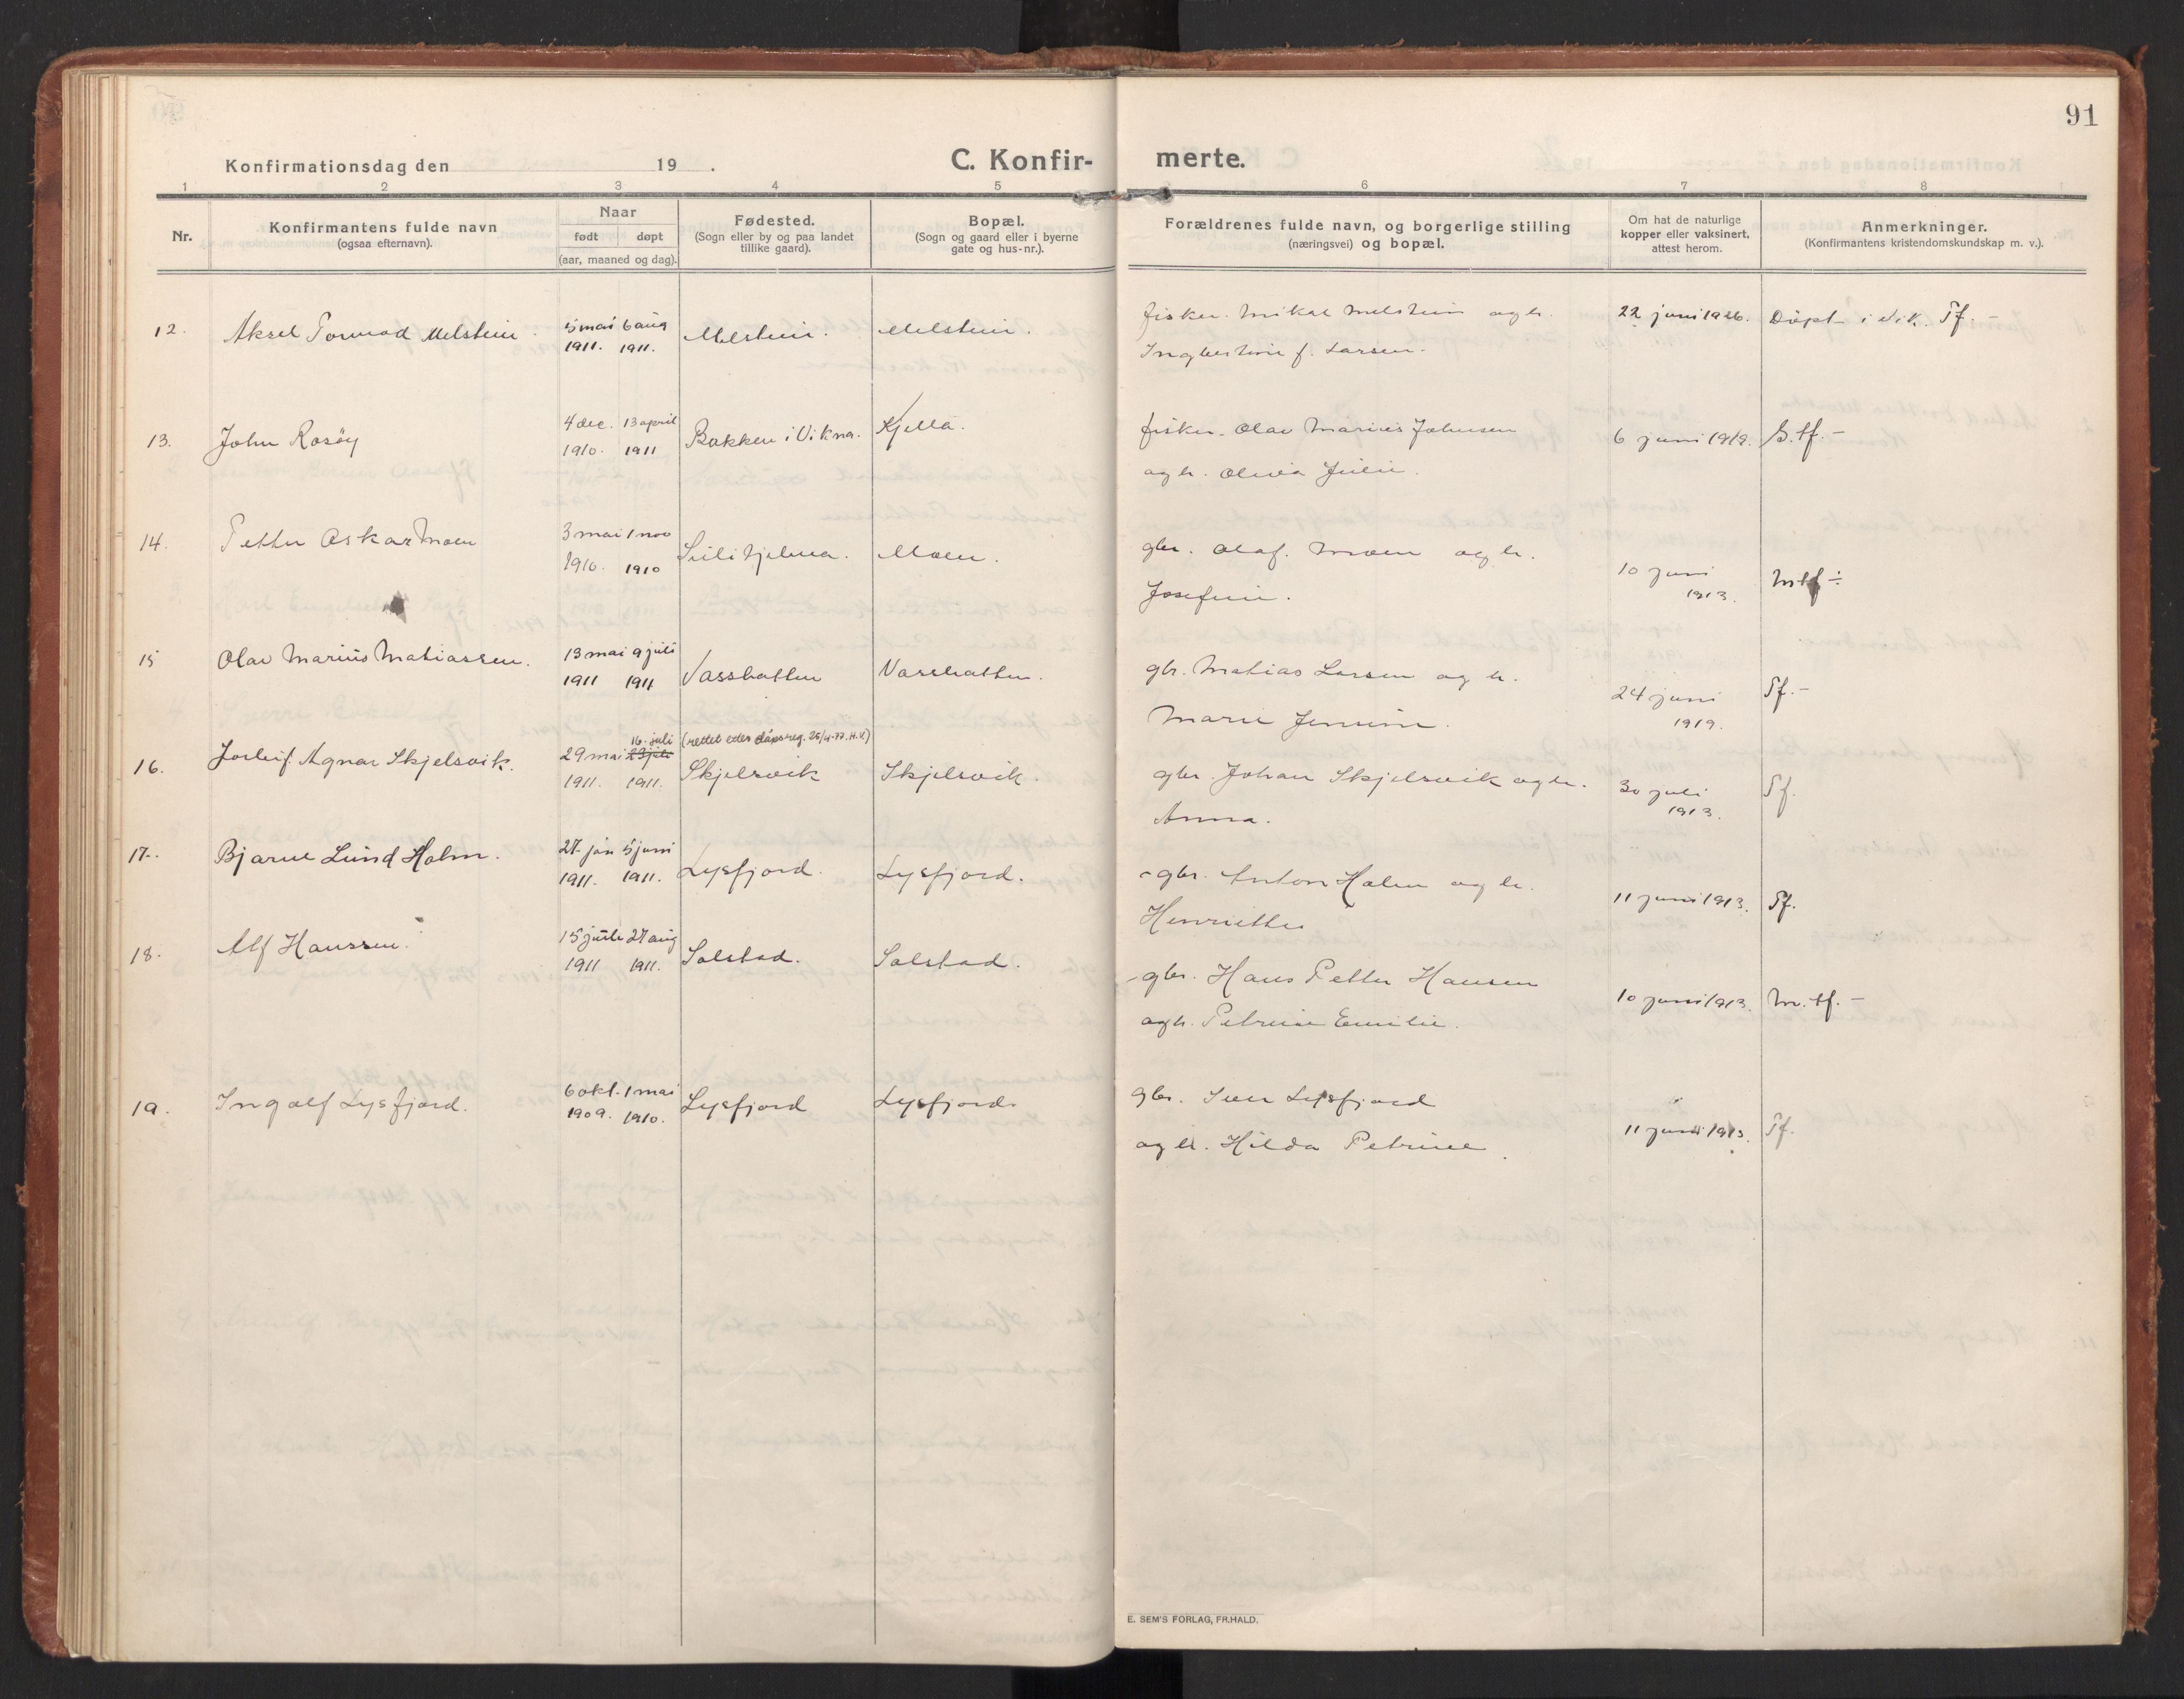 91
Konfirmationsdag den 19 . C. Konfir- merte.
1 2 3 4 5 6 7 8
Nr. Konfirmantens fulde navn (ogsaa efternavn). Naar født døpt (aar, maaned og dag). Fødested. (Sogn eller by og paa landet tillike gaard). Bopæl. (Sogn og gaard eller i byerne gate og hus-nr.). Forældrenes fulde navn, og borgerlige stilling (næringsvei) og bopæl. Om hat de naturlige kopper eller vaksinert, attest herom. Anmerkninger. (Konfirmantens kristendomskundskap m. v.).
12. Aksel Tormod Melstein 5 mai 6 aug Melstein. Melstein. fisker Mikal Melstein og h. 22 juni 1926. Döpt i Vik. Tf. -
1911. 1911. f. Larsen.
13. John Rosöy 4 dec. 13 april Bakken i Vikna. Kjella. fisker Olav Marius Johnsen 6 juni 1919. S.tf. -
1910. 1911 og h. Olivia Julie.
14. Petter Oskar Moen 3 mai 1 nov Sulitjelma. Moen. gbr. Olaf Moen og h. 10 juni M.tf ÷
1910. 1910 Josefine. 1913.
15 Olav Marius Matiassen. 13 mai 9 juli Vassbotten Vassbotten. gbr. Matias Larsen og h. 24 juni Tf. -
1911 1911 Marie Jensine. 1919.
16. juli (rettet etter dåpsreg. 26/4-77. H.V.)
16. Jorleif Agnar Skjelsvik. 29 mai 23 juli Skjelsvik Skjelsvik. gbr. Johan Skjelsvik og h. 30 juli Tf.
1911. 1911. Anna. 1913.
17. Bjarne Lund Holm. 27 jan 5 juni Lysfjord. Lysfjord. gbr. Anton Holm og h. 11 juni 1913. Tf.
1911. 1911. Henriette
18. Alf Hanssen. 15 juli 27 aug Solstad. Solstad. gbr. Hans Petter Hansen 10 juni 1913. M.tf. -
1911 1911. og h. Petrine Emilie.
19. Ingolf Lysfjord. 6 okt. 1 mai Lysfjord Lysfjord. gbr. Iver Lysfjord 11 juni 1913. Tf.
1909. 1910. og h. Hilda Petrine.
E. SEM'S FORLAG, FR.HALD.